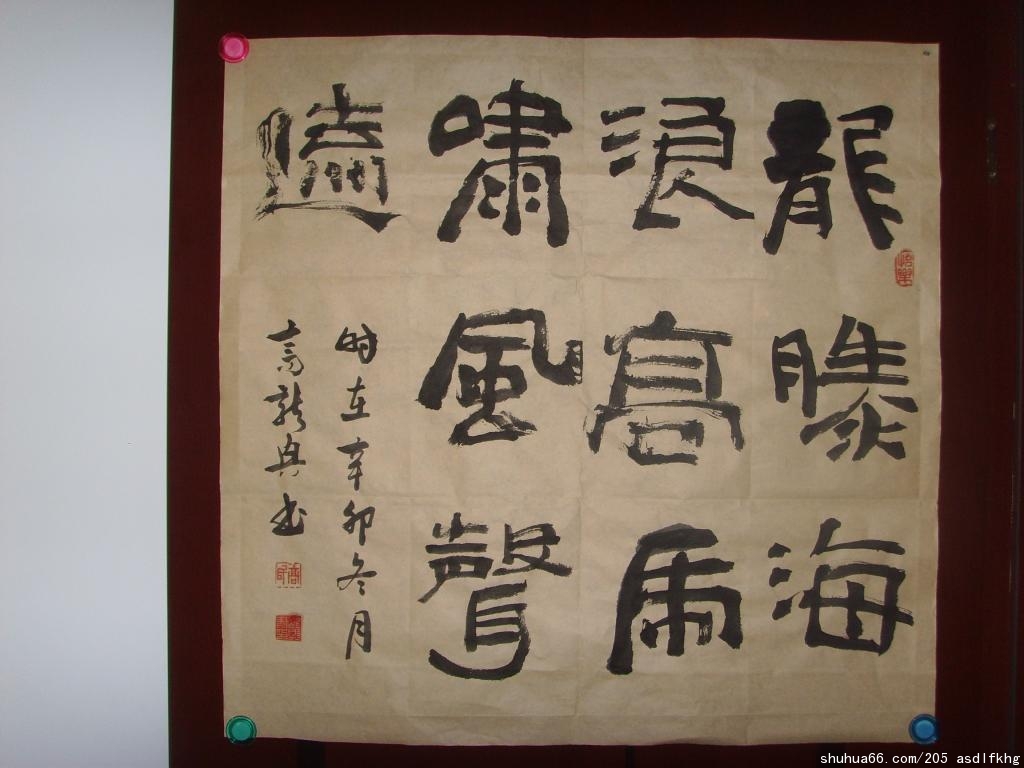 龍騰海
浪高虎
嘯風聲
遠
时在辛卯冬月
高龍典书
shuhua66.com/205 asdlfkhg